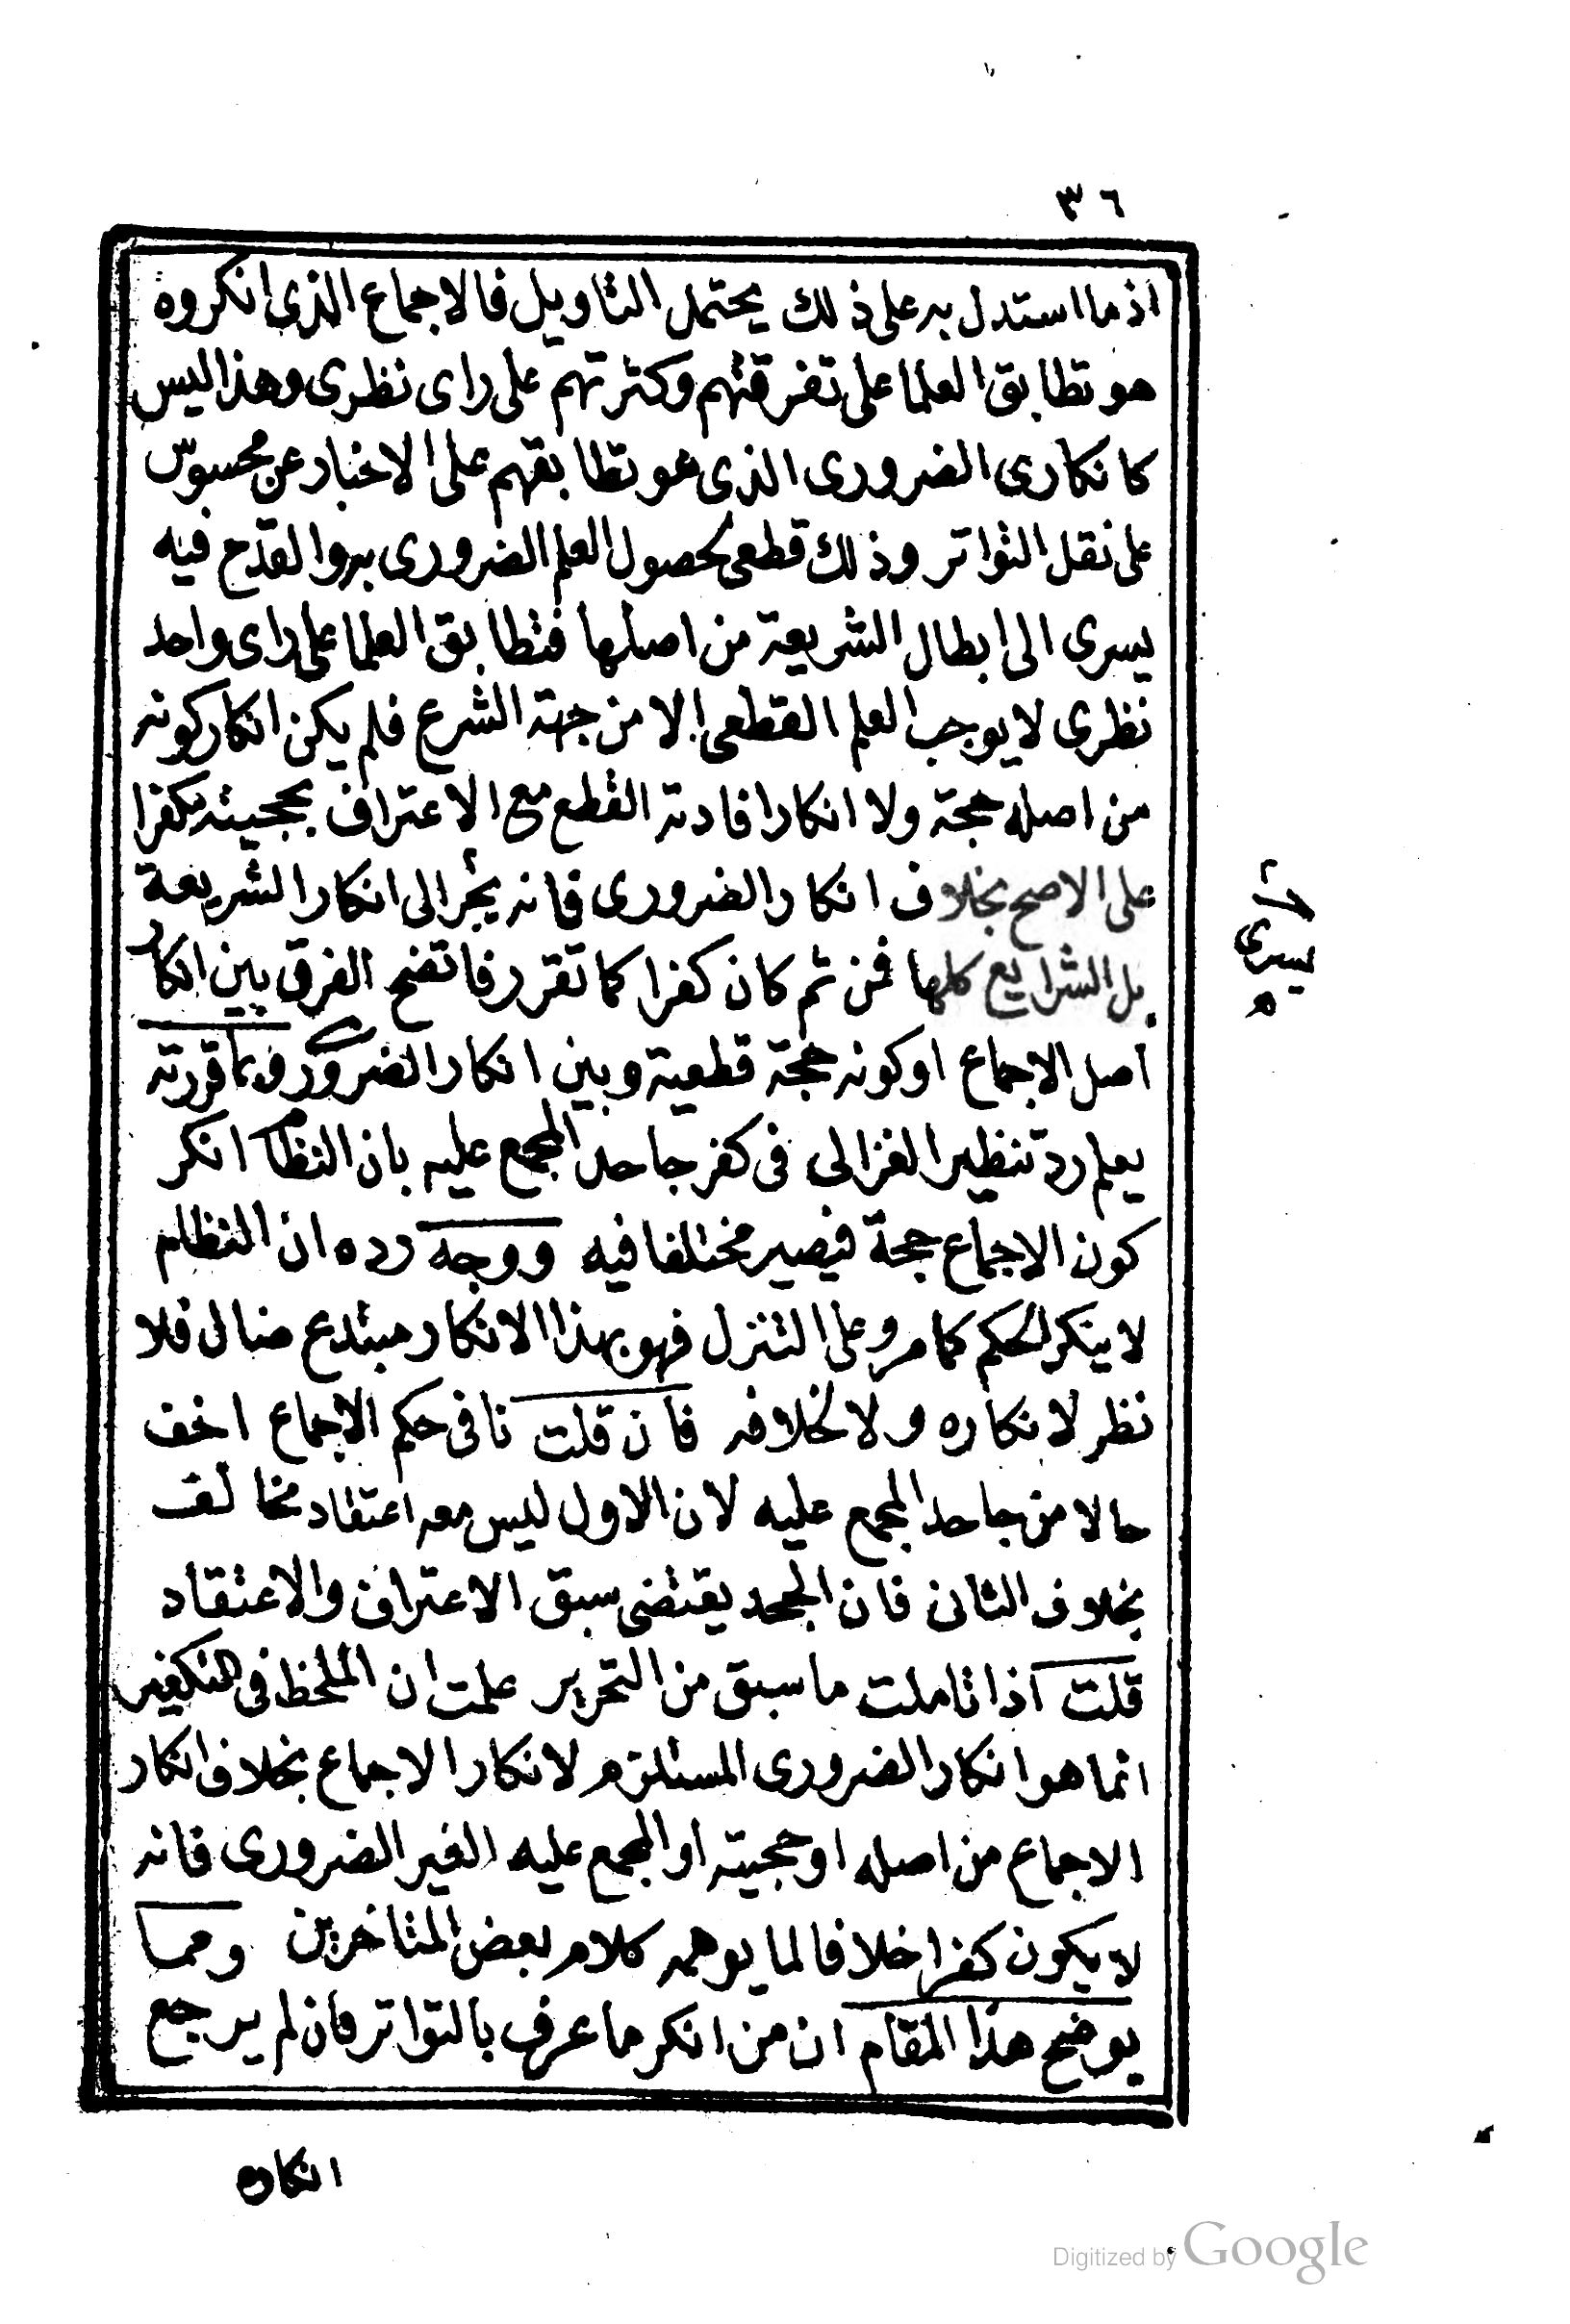 ٣٦
اذ ما استدل به على ذلك يحتمل التاويل فالاجماع الذى انكروه
هو تطابق العلما على تفرقتهم وكثرتهم على راى نظرى وهذا ليس
كانكارى الضرورى الذى هو تطابقهم على الاخبار عن محسوس
على نقل التواتر وذلك قطعى لحصول العلم الضرورى به والقدح فيه
يسرى الى ابطال الشريعة من اصلها فتطابق العلما على راى واحد
نظرى لا يوجب العلم القطعى الا من جهة الشرع فلم يكن انكار كونه
من اصله حجة ولا انكار افادته القطع مع الاعتراف بحجيته كفرا
على الاصح بخلاف انكار الضرورى فانه يجر الى انكار الشريعة
بل الشرايع كلها فمن ثم كان كفرا كما تقرر فاتضح الفرق بين انكار
اصل الاجماع او كونه حجة قطعية وبين انكار الضرورى وبما قررته
يعلم رد تنظير الغزالى فى كفر جاحد المجمع عليه بان النظام انكر
كون الاجماع حجة فيصير مختلفا فيه ووجه رده ان النظام
لا ينكر الحكم كما مر وعلى التنزل فهو بهذا الانكار مبتدع ضال فلا
نظر لانكاره ولا لخلافه فان قلت نافى حكم الاجماع اخف
حالا من جاحد المجمع عليه لان الاول ليس معه اعتقاد مخالف
بخلاف الثانى فان الجحد يقتضى سبق الاعتراف والاعتقاد
قلت اذا تاملت ما سبق من التحرير علمت ان الملحظ فى التكفير
انما هو انكار الضرورى المستلزم لانكار الاجماع بخلاف انكار
الاجماع من اصله او حجيته او المجمع عليه الغير الضرورى فانه
لا يكون كفرا خلافا لما يوهمه كلام بعض المتاخرين ومما
يوضح هذا المقام ان من انكر ما عرف بالتواتر فان لم يرجع
انكاره
يسرى
Digitized by Google